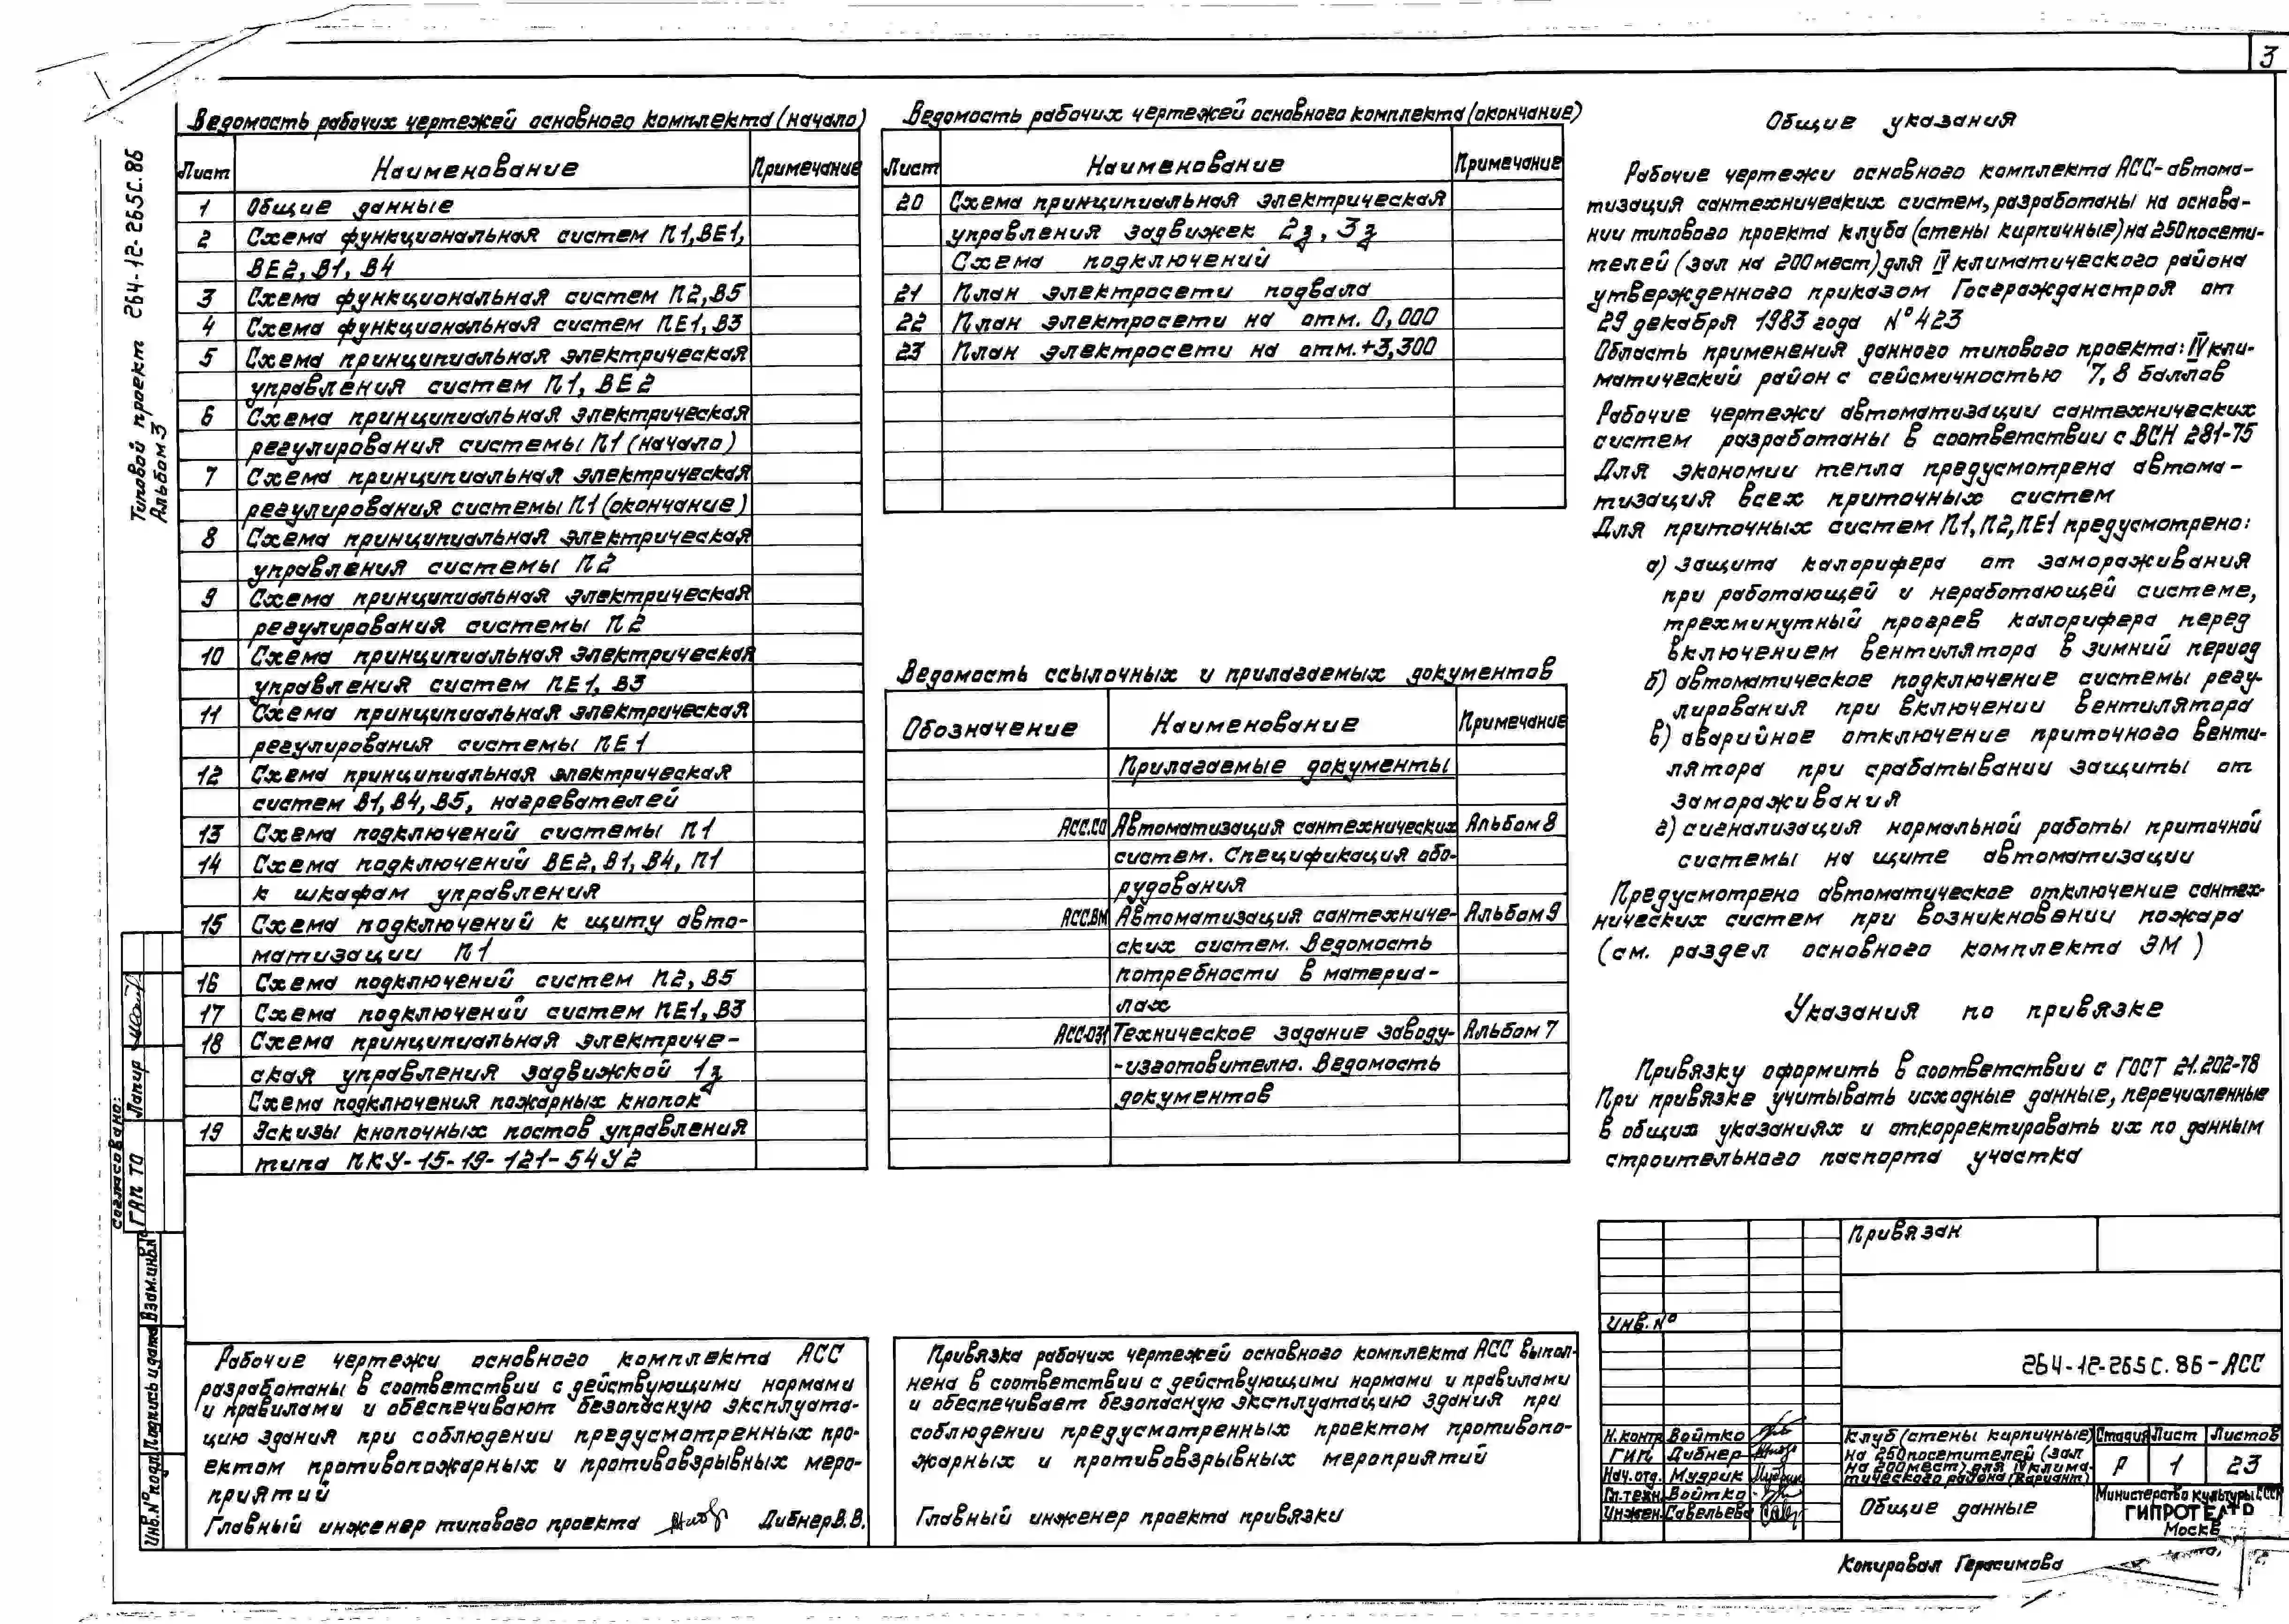 3
Типовой проект 264-12-265С.86
Альбом 3
Ведомость рабочих чертежей основного комплекта (начало)
Лист Наименование Примечание
1 Общие данные
2 Схема функциональная систем П1, ВЕ1,
ВЕ2, В1, В4
3 Схема функциональная систем П2, В5
4 Схема функциональная систем ПЕ1, В3
5 Схема принципиальная электрическая
управления систем П1, ВЕ2
6 Схема принципиальная электрическая
регулирования системы П1 (начало)
7 Схема принципиальная электрическая
регулирования системы П1 (окончание)
8 Схема принципиальная электрическая
управления системы П2
9 Схема принципиальная электрическая
регулирования системы П2
10 Схема принципиальная электрическая
управления систем ПЕ1, В3
11 Схема принципиальная электрическая
регулирования системы ПЕ1
12 Схема принципиальная электрическая
систем В1, В4, В5, нагревателей
13 Схема подключений системы П1
14 Схема подключений ВЕ2, В1, В4, П1
к шкафам управления
15 Схема подключений к щиту авто-
матизации П1
16 Схема подключений систем П2, В5
17 Схема подключений систем ПЕ1, В3
18 Схема принципиальная электриче-
ская управления задвижкой 1з
Схема подключения пожарных кнопок
19 Эскизы кнопочных постов управления
типа ПКУ-15-19-121-54У2
Ведомость рабочих чертежей основного комплекта (окончание)
Лист Наименование Примечание
20 Схема принципиальная электрическая
управления задвижек 2з, 3з
Схема подключений
21 План электросети подвала
22 План электросети на отм. 0,000
23 План электросети на отм. +3,300
Ведомость ссылочных и прилагаемых документов
Обозначение Наименование Примечание
Прилагаемые документы
АСС.СО Автоматизация сантехнических Альбом 8
систем. Спецификация обо-
рудования
АСС.ВМ Автоматизация сантехниче- Альбом 9
ских систем. Ведомость
потребности в материа-
лах
АСС-ОЗ1 Техническое задание заводу- Альбом 7
-изготовителю. Ведомость
документов
Общие указания
Рабочие чертежи основного комплекта АСС-автома-
тизация сантехнических систем, разработаны на основа-
нии типового проекта клуба (стены кирпичные) на 250 посети-
телей (зал на 200 мест) для IV климатического района
утвержденного приказом Госгражданстроя от
29 декабря 1983 года №423
Область применения данного типового проекта: IV кли-
матический район с сейсмичностью 7, 8 баллов
Рабочие чертежи автоматизации сантехнических
систем разработаны в соответствии с ВСН 281-75
Для экономии тепла предусмотрена автома-
тизация всех приточных систем
Для приточных систем П1, П2, ПЕ1 предусмотрено:
а) защита калорифера от замораживания
при работающей и неработающей системе,
трехминутный прогрев калорифера перед
включением вентилятора в зимний период
б) автоматическое подключение системы регу-
лирования при включении вентилятора
в) аварийное отключение приточного венти-
лятора при срабатывании защиты от
замораживания
г) сигнализация нормальной работы приточной
системы на щите автоматизации
Предусмотрено автоматическое отключение сантех-
нических систем при возникновении пожара
(см. раздел основного комплекта ЭМ)
Указания по привязке
Привязку оформить в соответствии с ГОСТ 21.202-78
При привязке учитывать исходные данные, перечисленные
в общих указаниях и откорректировать их по данным
строительного паспорта участка
Согласовано:
ГАП ТО Лапир
Взам.инв.№
Подпись и дата
Инв.№ подл.
Рабочие чертежи основного комплекта АСС
разработаны в соответствии с действующими нормами
и правилами и обеспечивают безопасную эксплуата-
цию здания при соблюдении предусмотренных про-
ектом противопожарных и противовзрывных меро-
приятий
Главный инженер типового проекта Дибнер В.В.
Привязка рабочих чертежей основного комплекта АСС выпол-
нена в соответствии с действующими нормами и правилами
и обеспечивает безопасную эксплуатацию здания при
соблюдении предусмотренных проектом противопо-
жарных и противовзрывных мероприятий
Главный инженер проекта привязки
Привязан
Инв.№
264-12-265С.86-АСС
Н.контр Войтко
ГИП Дибнер
Нач.отд. Мудрик
Гл.техн. Войтко
Инжен. Савельева
Клуб (стены кирпичные)
на 250 посетителей (зал
на 200 мест) для IV клима-
тического района (Вариант)
Стадия Лист Листов
Р 1 23
Общие данные
Министерство культуры СССР
ГИПРОТЕАТР
Москв
Копировал Герасимова